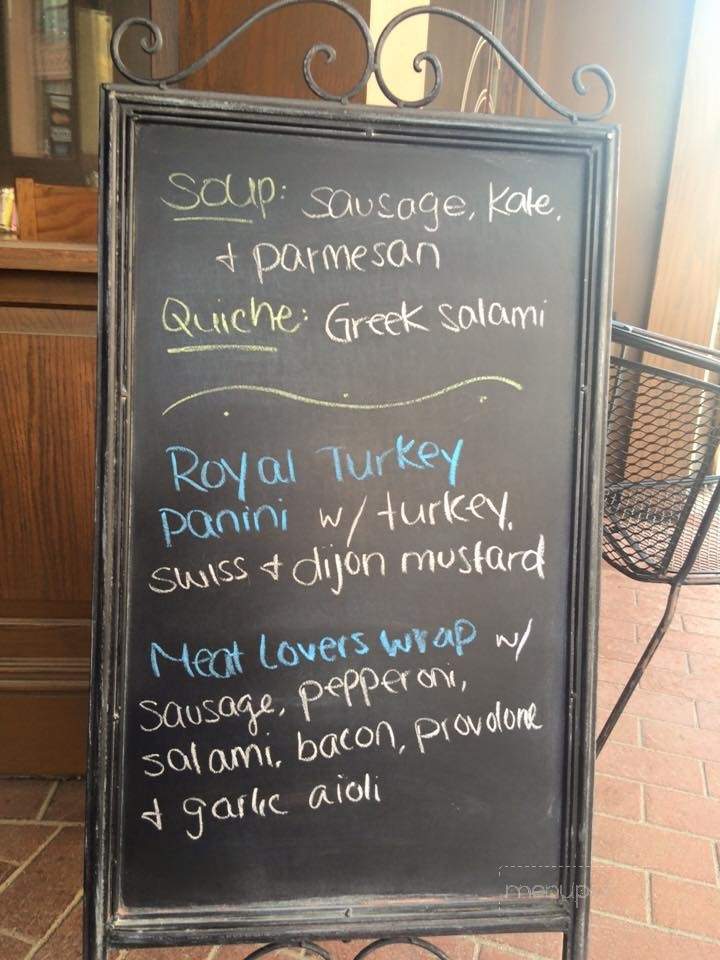 Soup: Sausage, Kale,
+ parmesan
Quiche: Greek salami
Royal Turkey
panini w/ turkey,
swiss + dijon mustard
Meat Lovers wrap w/
sausage, pepperoni,
salami, bacon, provolone
+ garlic aioli
menup